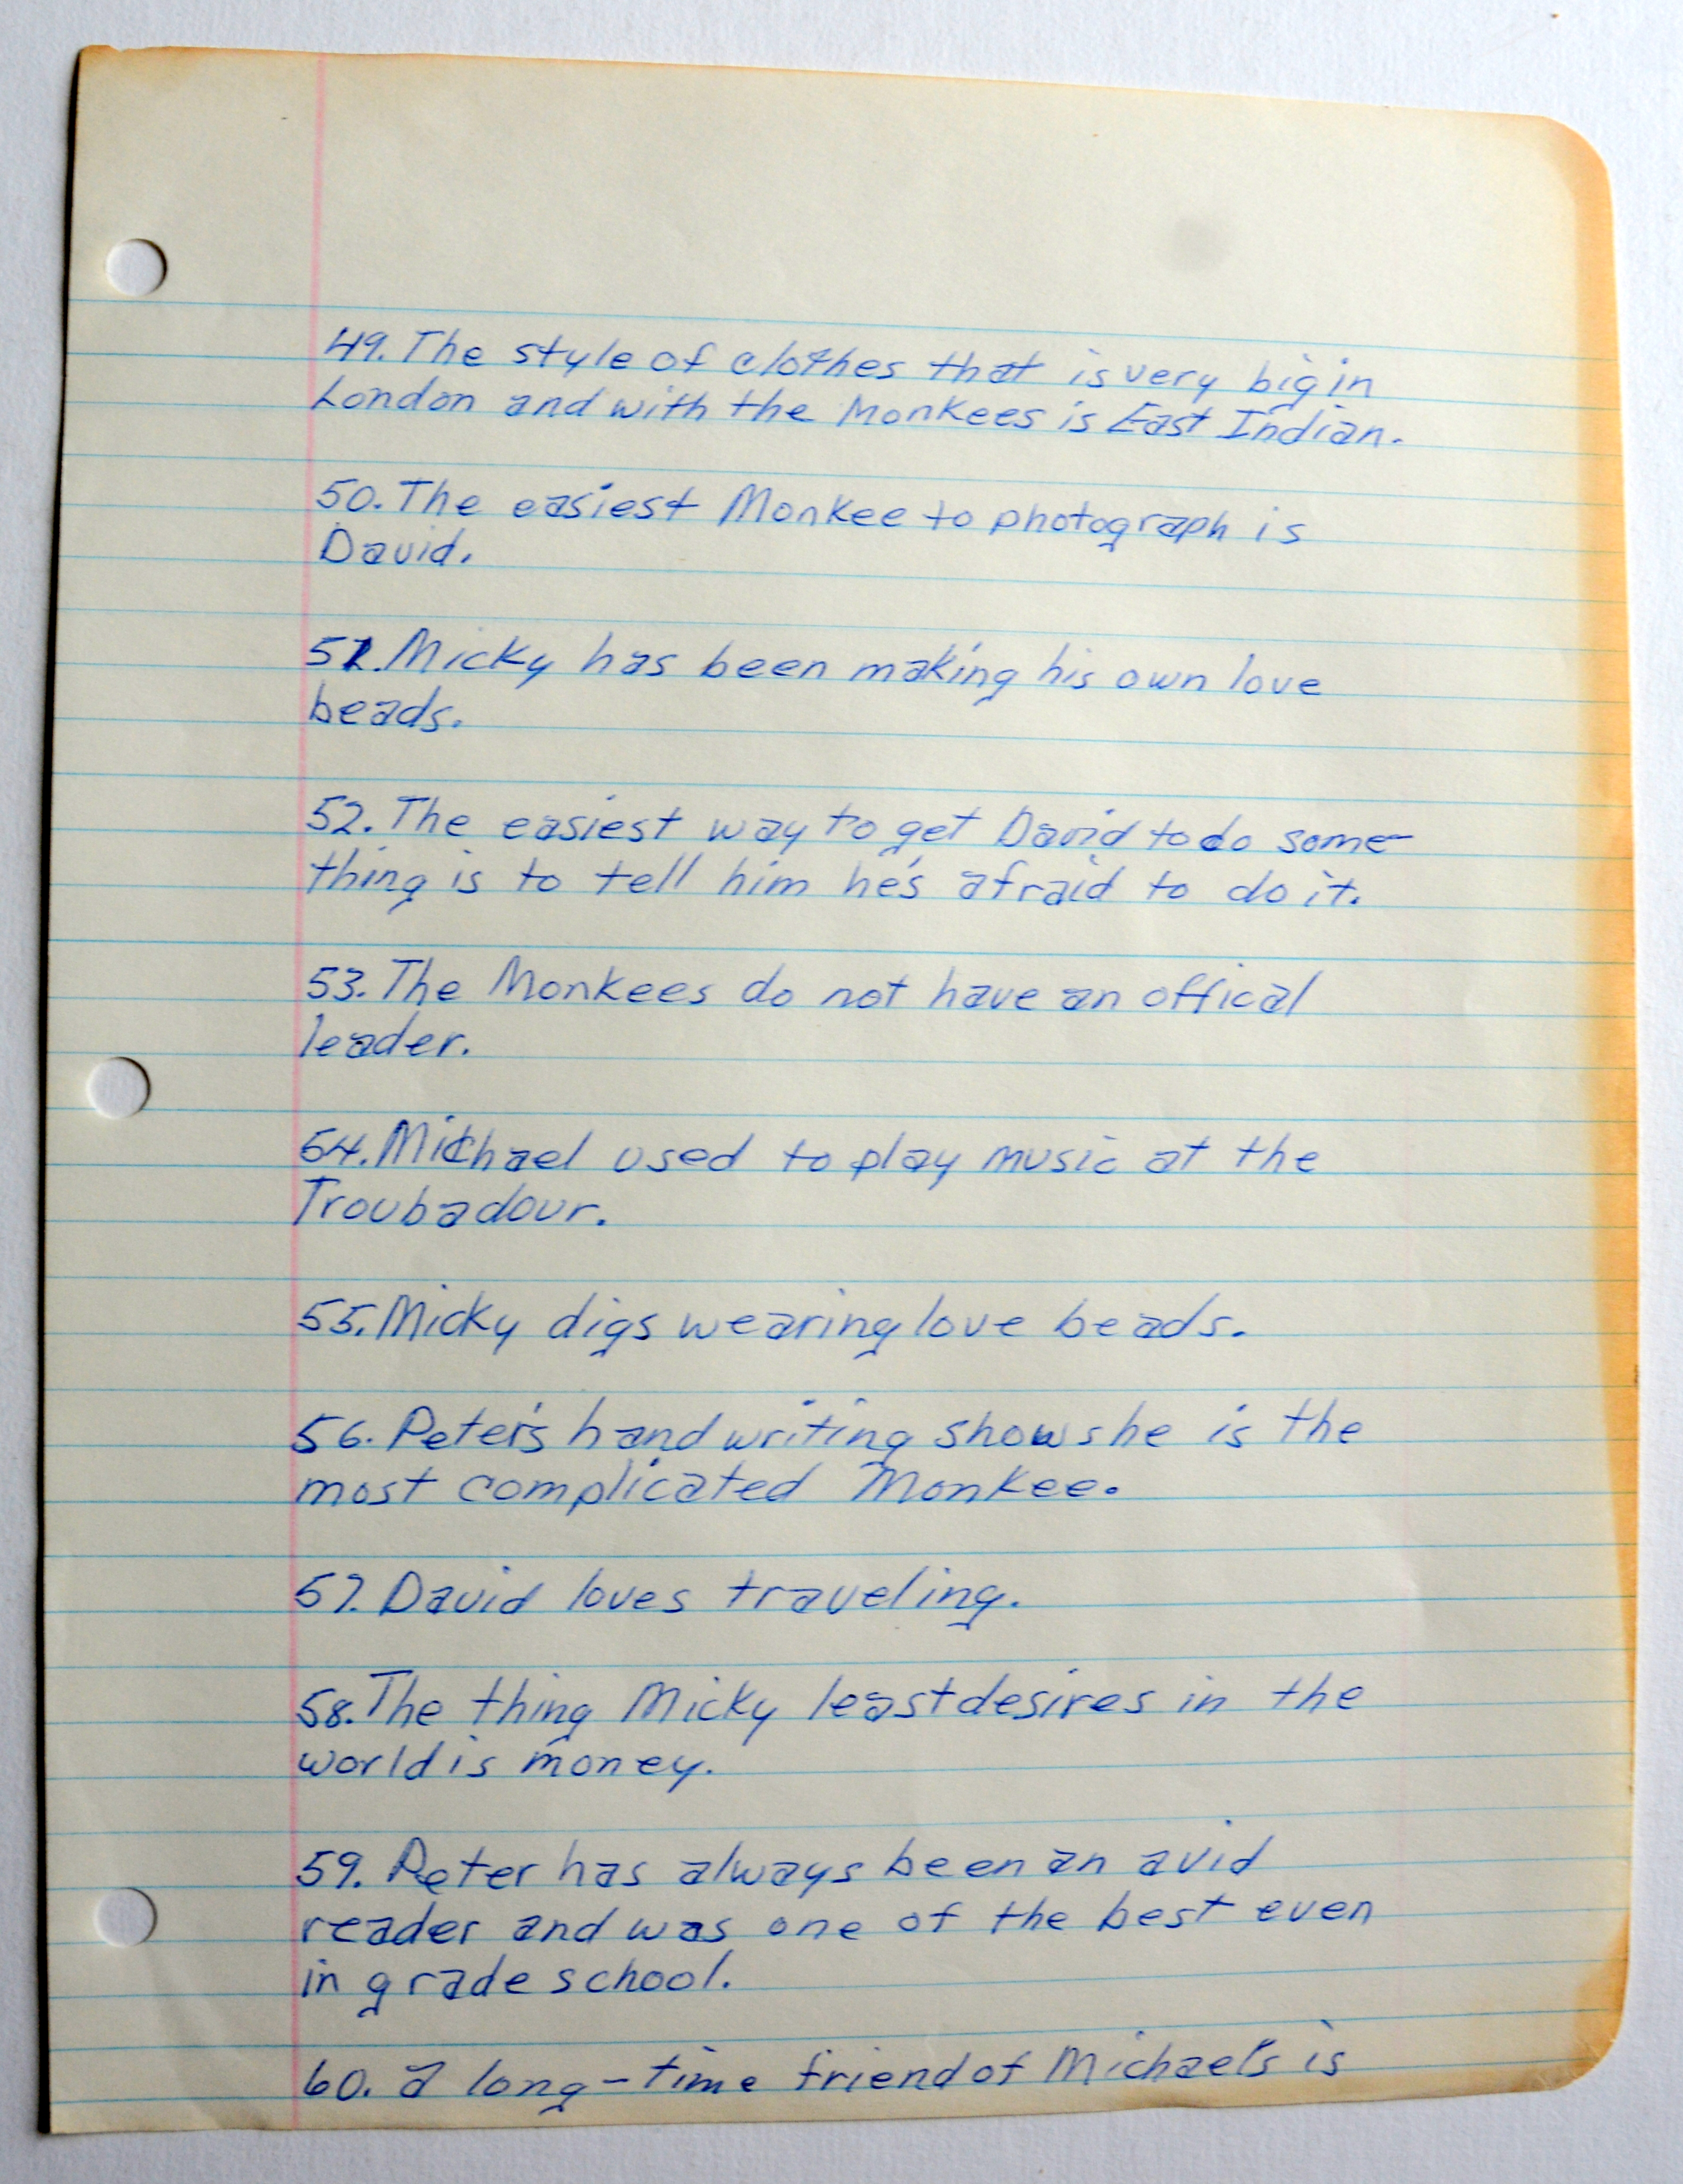 49. The style of clothes that is very big in
London and with the Monkees is East Indian.
50. The easiest Monkee to photograph is
David.
51. Micky has been making his own love
beads.
52. The easiest way to get David to do some-
thing is to tell him he's afraid to do it.
53. The Monkees do not have an offical
leader.
54. Michael used to play music at the
Troubadour.
55. Micky digs wearing love beads.
56. Peter's handwriting shows he is the
most complicated Monkee.
57. David loves traveling.
58. The thing Micky least desires in the
world is money.
59. Peter has always been an avid
reader and was one of the best even
in grade school.
60. a long-time friend of Michael's is